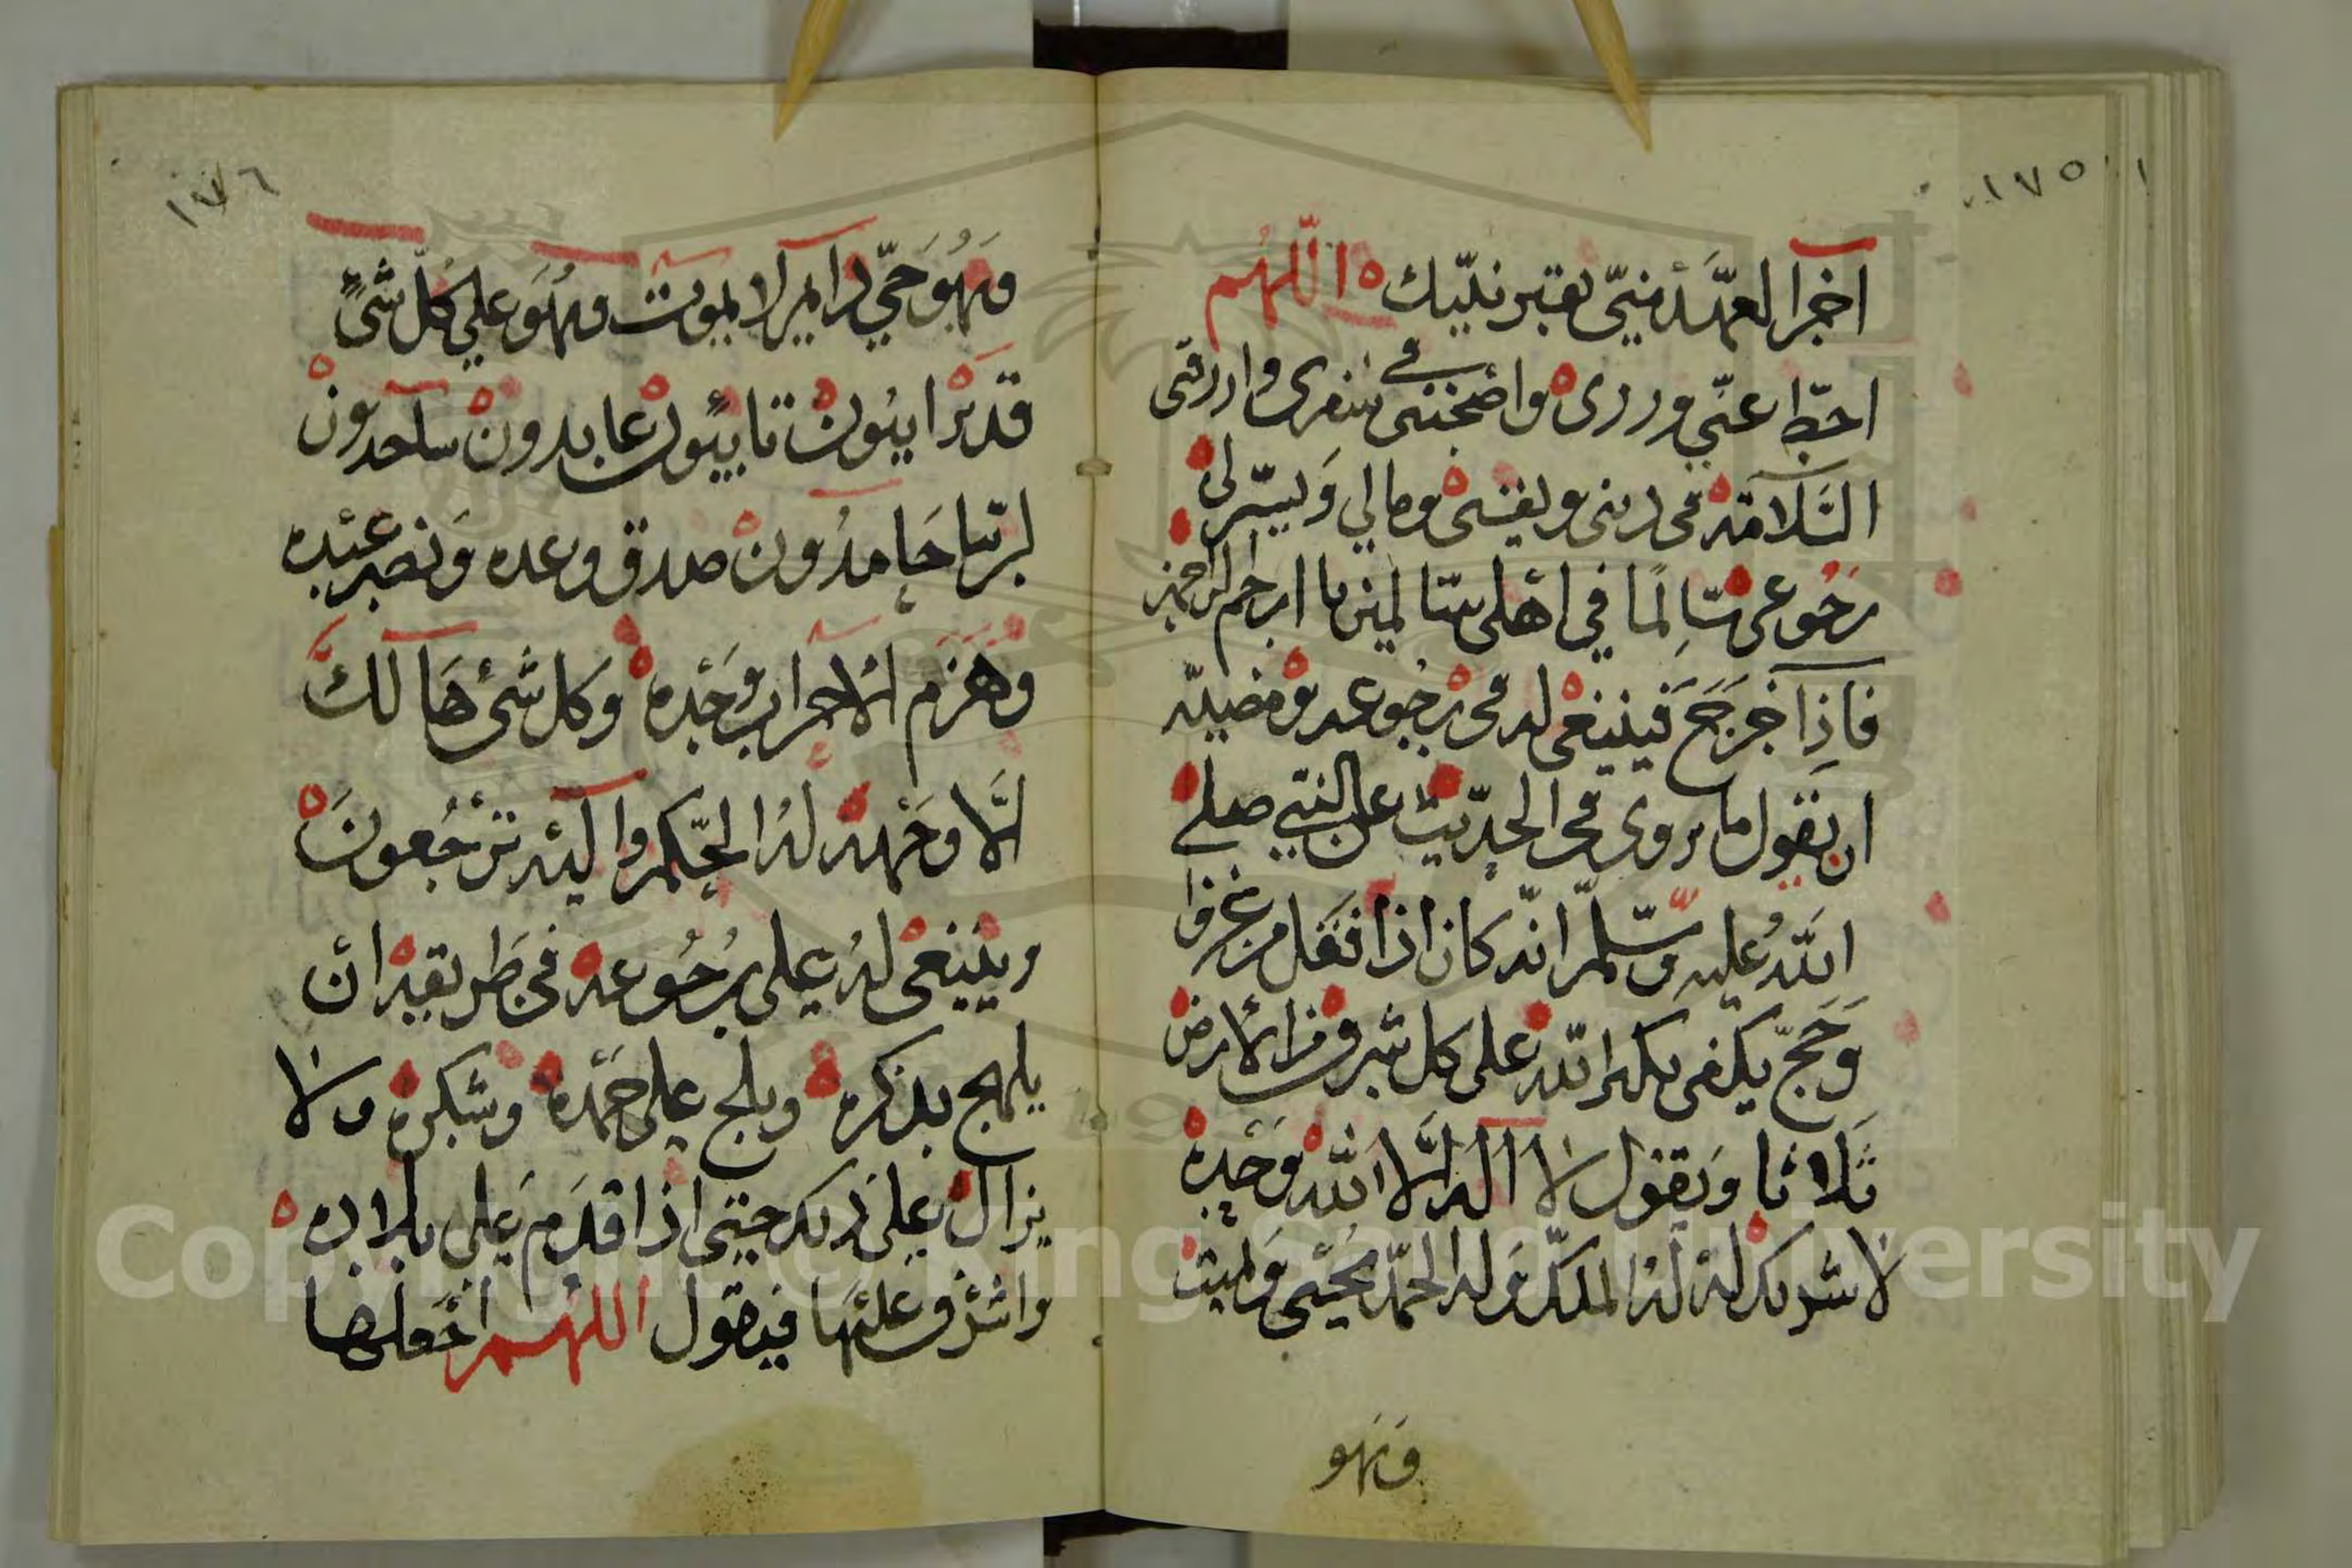 ١٧٥
اخر العهد مني بقبر نبيك ه اللهم
احطط عني وزري ه واصحبني في سفري وارزقني
السلامة في ديني ونفسي ومالي ويسر لي
رجوعي سالما في اهلي سالمين يا ارحم الراحمين
فاذا خرج فينبغي له في رجوعه
ان يقول ما روى في الحديث عن النبي صلي
الله عليه وسلم انه كان اذا قفل من غزو
وحج يكبر الله على كل شرف من الأرض
ثلاثا ويقول لا اله الا الله وحده
لا شريك له له الملك وله الحمد يحيي ويميت
وهو
١٧٦
وهو حي دايم لا يموت وهو علي كل شي
قدير ايبون تايبون عابدون ساجدون
لربنا حامدون صدق وعده ونصر عبده
وهزم الاحزاب وحده وكل شي هالك
الا وجهه له الحكم واليه ترجعون
وينبغي له على رجوعه في طريقه ان
يلهج بذكره ويلح على حمده وشكره ولا
يزال على ذلك حتى اذا قدم على بلاده ه
واشرف عليها فيقول اللهم اجعلها
Copyright © King Saud University